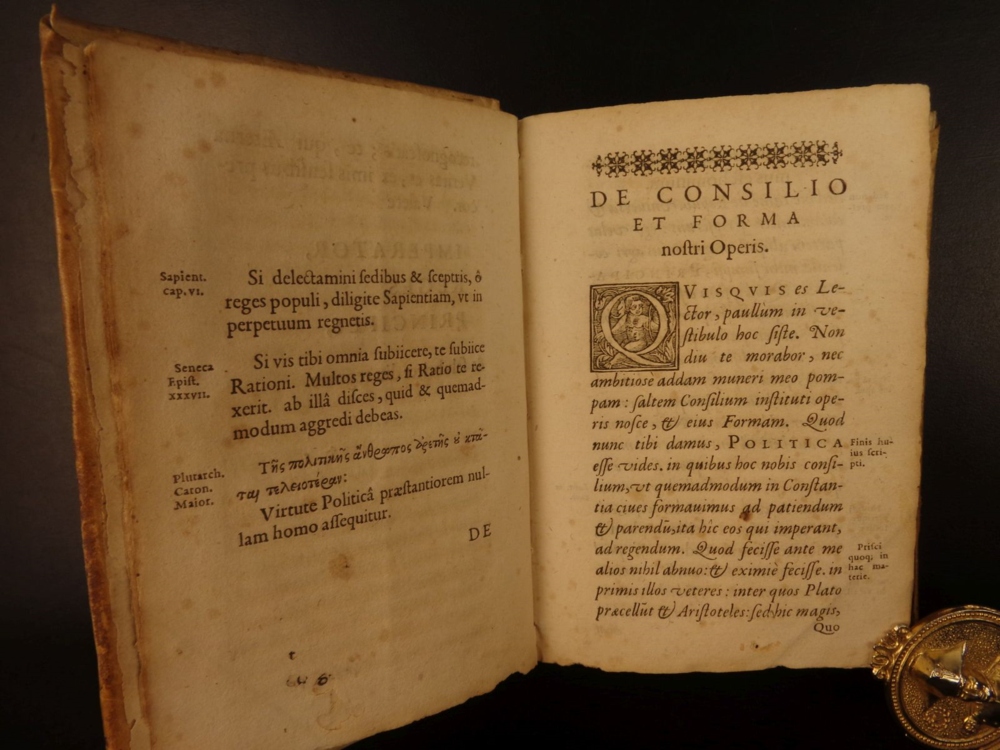 Sapient.
cap. vi.
Si delectamini ſedibus & ſceptris, ô
reges populi, diligite Sapientiam, vt in
perpetuum regnetis.
Seneca
Epiſt.
xxxvii.
Si vis tibi omnia ſubiicere, te ſubiice
Rationi. Multos reges, ſi Ratio te re-
xerit. ab illâ diſces, quid & quemad-
modum aggredi debeas.
Plutarch.
Caton.
Maior.
Τῆς πολιτικῆς ἄνθρωπος ἀρετῆς οὐ κτᾶ-
ται τελειοτέραν:
Virtute Politicâ præſtantiorem nul-
lam homo aſſequitur.
DE
DE CONSILIO
ET FORMA
noſtri Operis.
QVISQVIS es Le-
ctor, paullùm in ve-
ſtibulo hoc ſiſte. Non
diu te morabor, nec
ambitioſè addam muneri meo pom-
pam: ſaltem Conſilium inſtituti ope-
ris noſce, & eius Formam. Quod
nunc tibi damus, POLITICA
eſſe vides. in quibus hoc nobis conſi-
lium, vt quemadmodum in Conſtan-
tia ciues formauimus ad patiendum
& parendū, ita hîc eos qui imperant,
ad regendum. Quod feciſſe ante me
alios nihil abnuo: & eximiè feciſſe. in
primis illos veteres: inter quos Plato
præcellūt & Ariſtoteles: ſed hic magis,
Quo
Finis hu-
ius ſcri-
pti.
Priſci
quoq; in
hac ma-
terie.